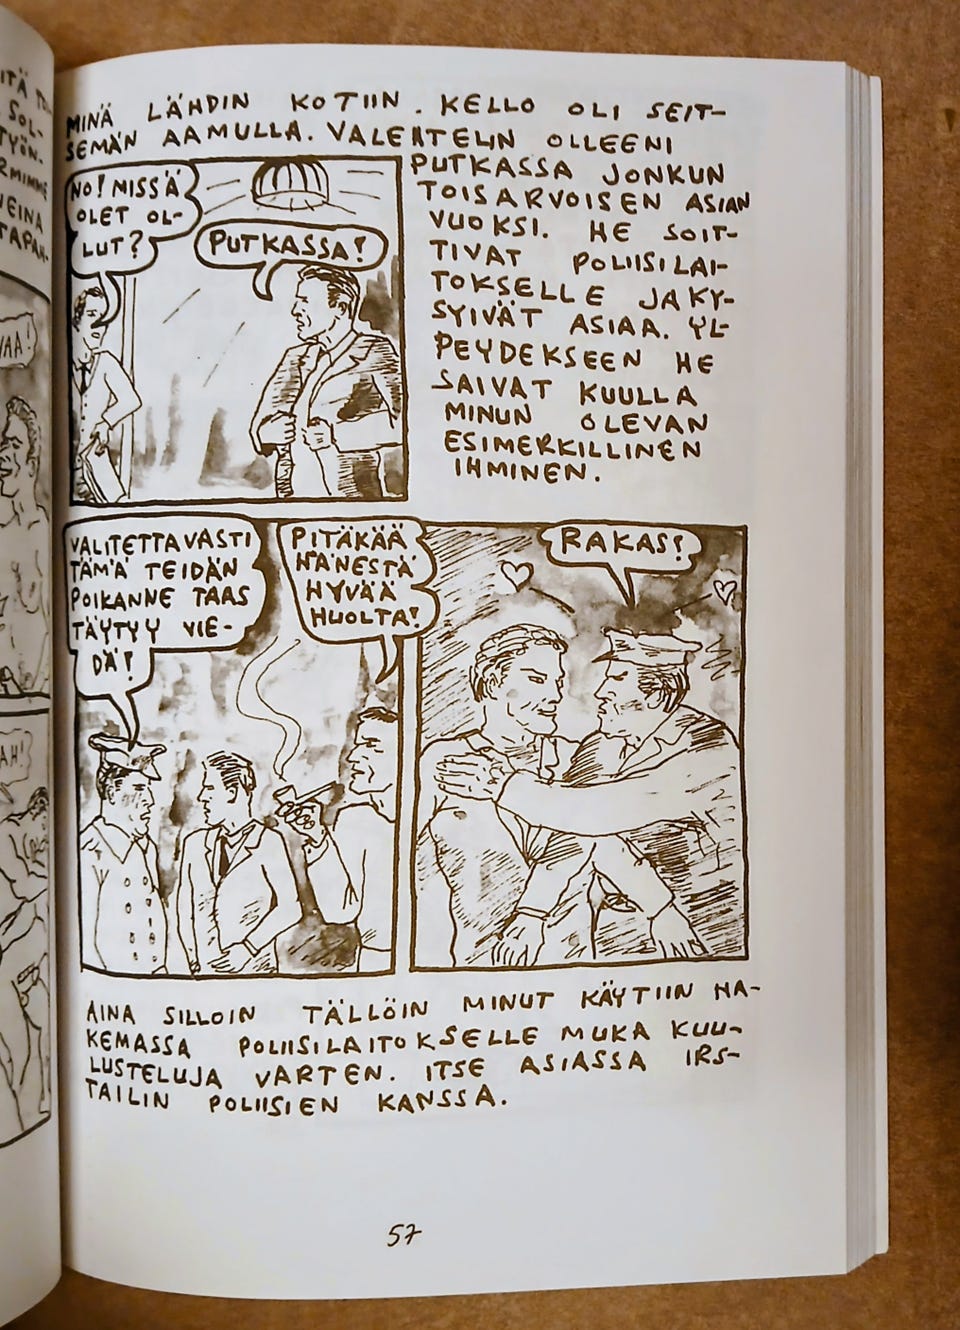 MINÄ LÄHDIN KOTIIN. KELLO OLI SEIT-
SEMÄN AAMULLA. VALEHTELIN OLLEENI
PUTKASSA JONKUN
TOISARVOISEN ASIAN
VUOKSI. HE SOIT-
TIVAT POLIISILAI-
TOKSELLE JA KY-
SYIVÄT ASIAA. YL-
PEYDEKSEEN HE
SAIVAT KUULLA
MINUN OLEVAN
ESIMERKILLINEN
IHMINEN.
NO! MISSÄ
OLET OL-
LUT?
PUTKASSA!
VALITETTAVASTI
TÄMÄ TEIDÄN
POIKANNE TAAS
TÄYTYY VIE-
DÄ!
PITÄKÄÄ
HÄNESTÄ
HYVÄÄ
HUOLTA!
RAKAS!
AINA SILLOIN TÄLLÖIN MINUT KÄYTIIN HA-
KEMASSA POLIISILAITOKSELLE MUKA KUU-
LUSTELUJA VARTEN. ITSE ASIASSA IRS-
TAILIN POLIISIEN KANSSA.
57